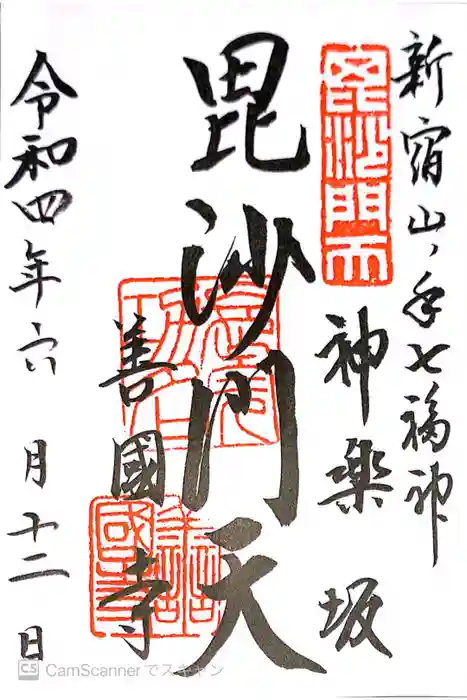 新宿山ノ手七福神
毘沙門天
神楽坂
毘沙門天
善國寺
令和四年六月十二日
CS CamScannerでスキャン